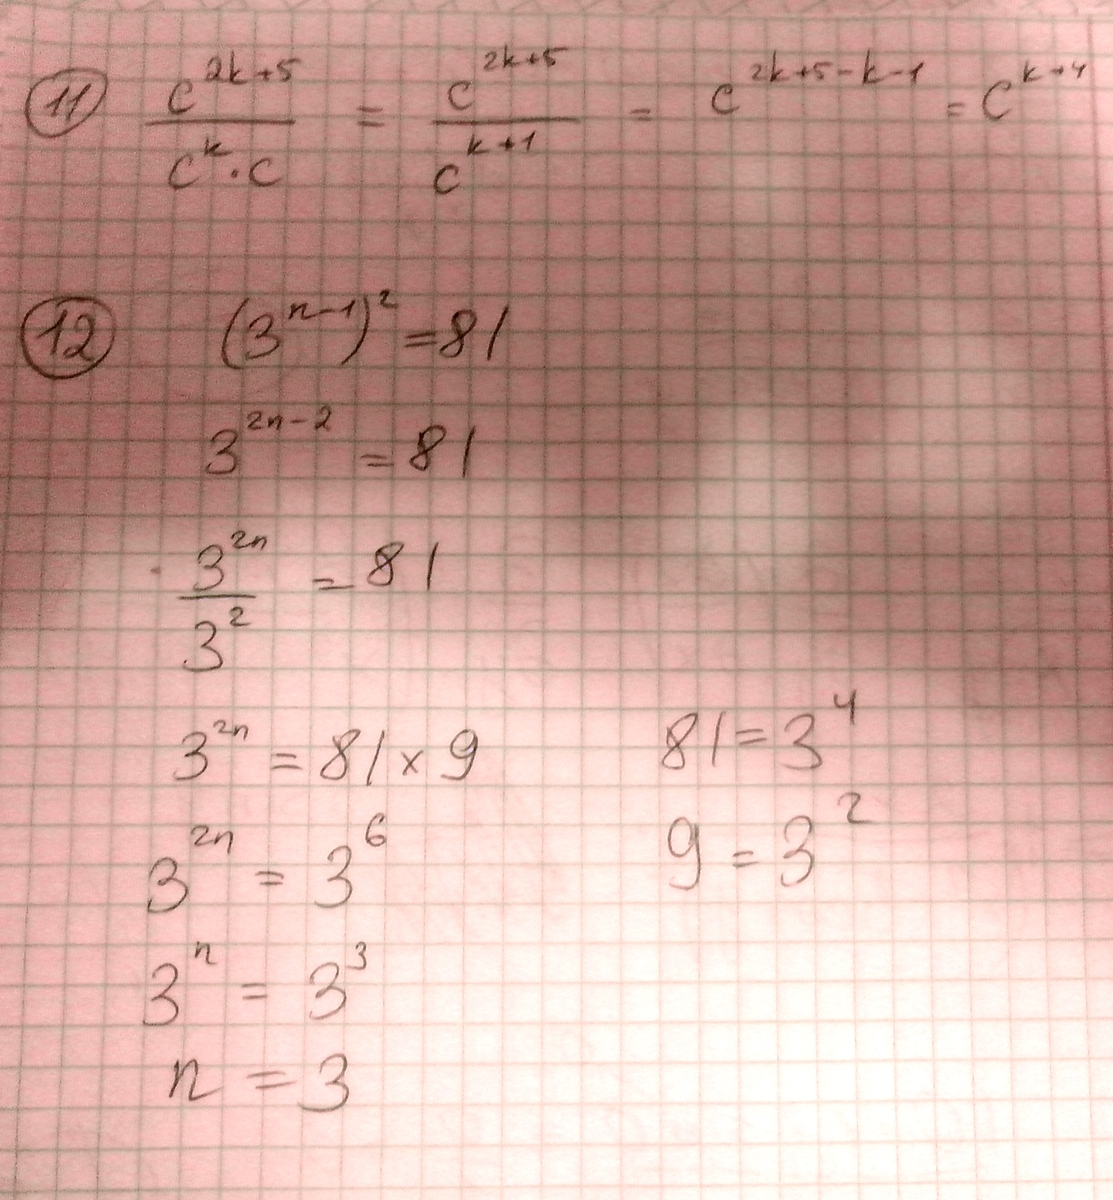 11 c^(2k+5)/(c^k · c) = c^(2k+5)/c^(k+1) = c^(2k+5-k-1) = c^(k+4)
12 (3^(n-1))^2 = 81
3^(2n-2) = 81
3^(2n)/3^2 = 81
3^(2n) = 81 × 9 81 = 3^4
3^(2n) = 3^6 9 = 3^2
3^n = 3^3
n = 3